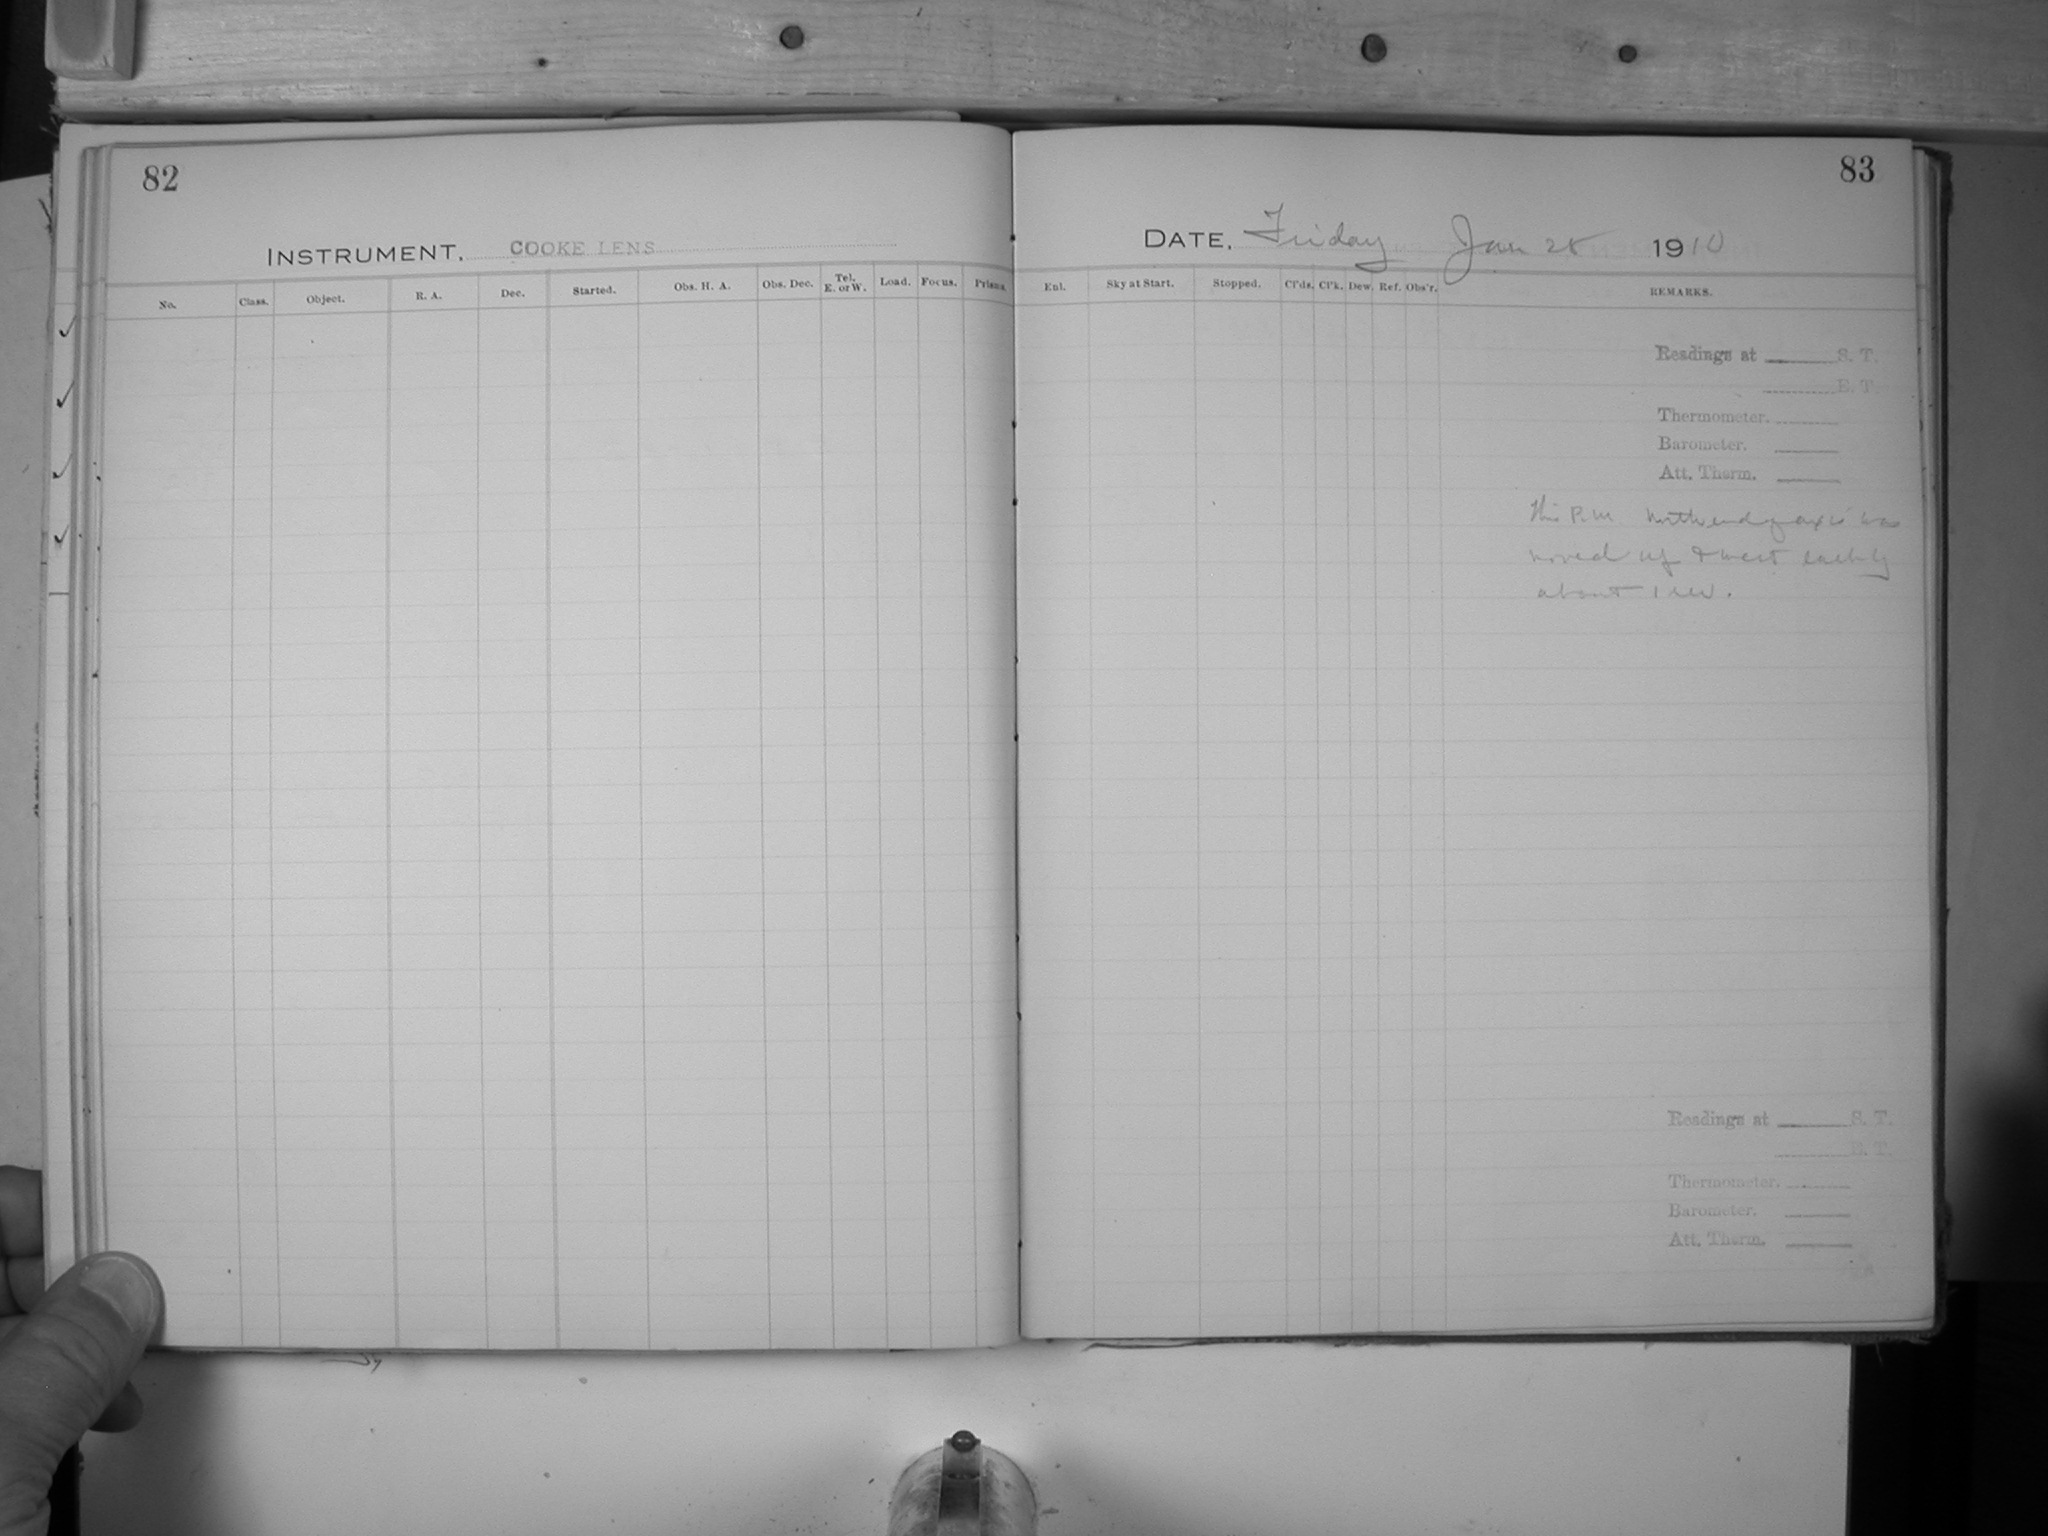 82
INSTRUMENT, COOKE LENS
No. Class. Object. R. A. Dec. Started. Obs. H. A. Obs. Dec. Tel. E. or W. Load. Focus. Prisms.
83
DATE, Friday Jan 28 1910
Enl. Sky at Start. Stopped. Cl'ds. Cl'k. Dew. Ref. Obs'r. REMARKS.
Readings at S. T.
E. T.
Thermometer.
Barometer.
Att. Therm.
This P.M. North end of axis was
moved up & west each by
about 1
Readings at S. T.
E. T.
Thermometer.
Barometer.
Att. Therm.